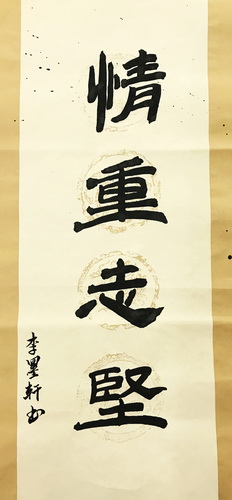 情重志堅
李墨軒书